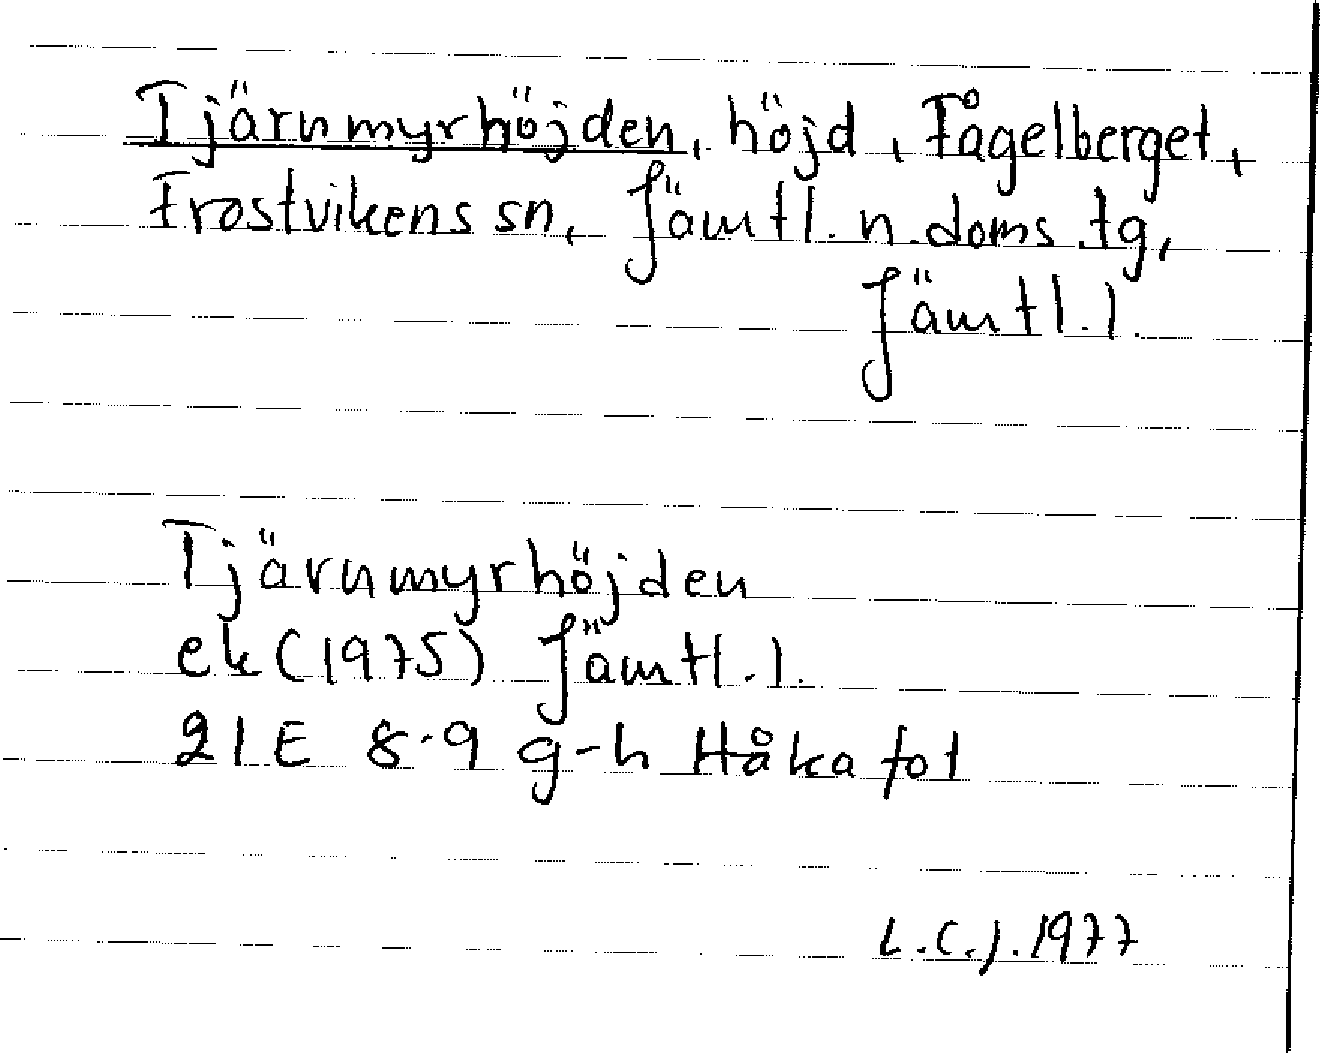 Tjärnmyrhöjden, höjd, Fågelberget,
Frostvikens sn, Jämtl. n. doms. tg,
Jämtl. l.
Tjärnmyrhöjden
ek (1975) Jämtl. l.
21E 8-9 g-h Håkafot
L.C.J. 1977